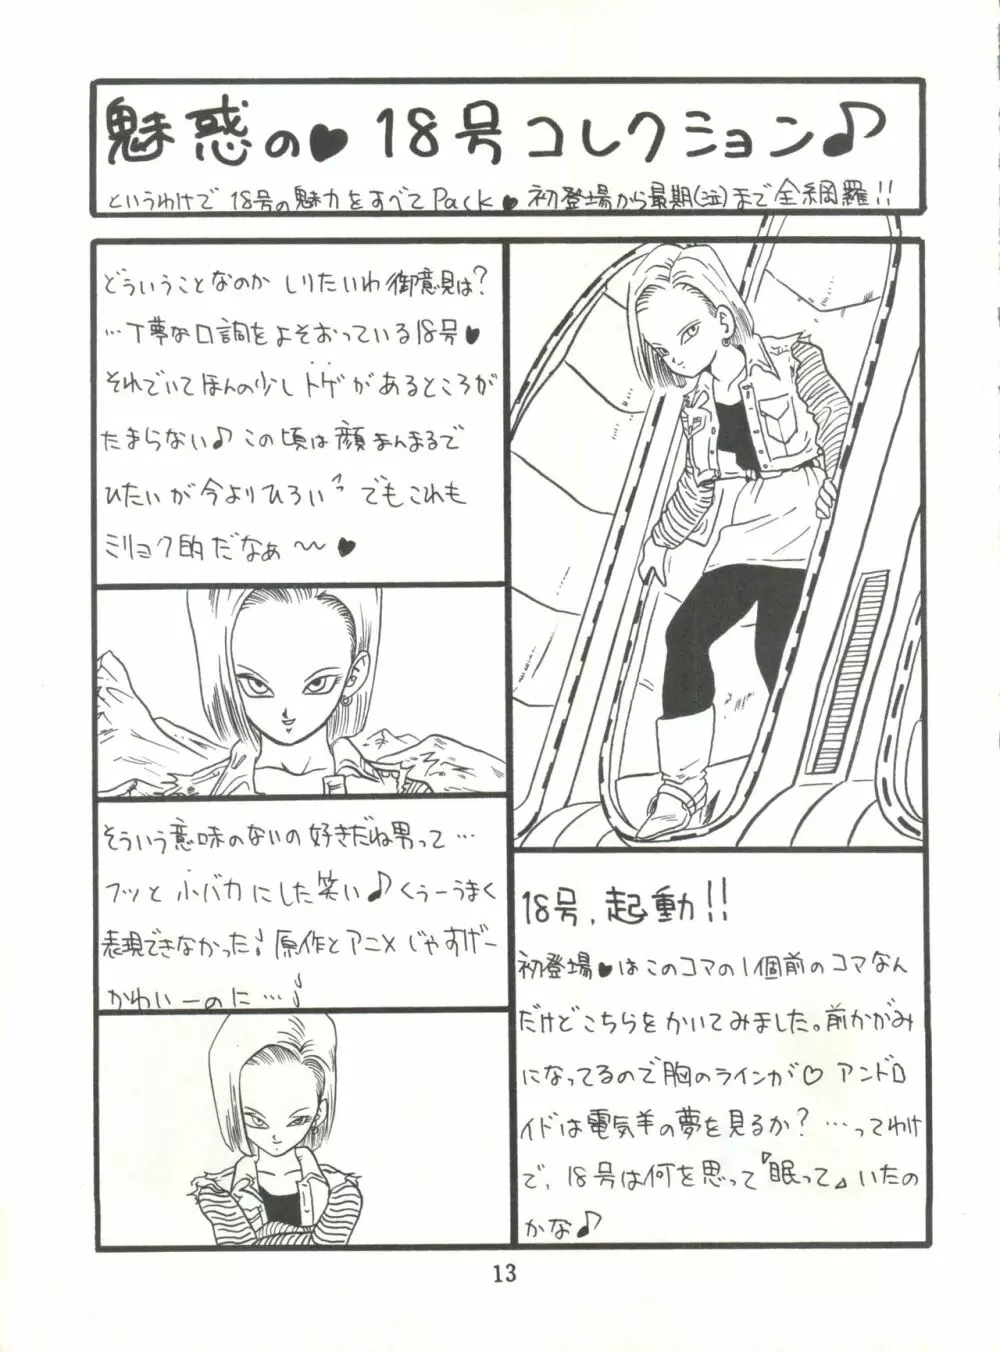 魅惑の♥18号コレクション♪
というわけで18号の魅力をすべてPack♥初登場から最期(泣)まで全網羅!!
どういうことなのか しりたいわ御意見は?
…丁寧な口調をよそおっている18号♥
それでいてほんの少しトゲがあるところが
たまらない♪この頃は顔まんまるで
ひたいが今よりひろい でもこれも
ミリョク的だなぁ〜♥
そういう意味のないの好きだね男って…
フッと小バカにした笑い♪くぅーうまく
表現できなかった 原作とアニメじゃすげー
かわいーのに…
18号,起動!!
初登場♥はこのコマの1個前のコマなん
だけどこちらをかいてみました。前かがみ
になってるので胸のラインが♡アンドロ
イドは電気羊の夢を見るか?…ってわけ
で、18号は何を思って『眠って』いたの
かな♪
13